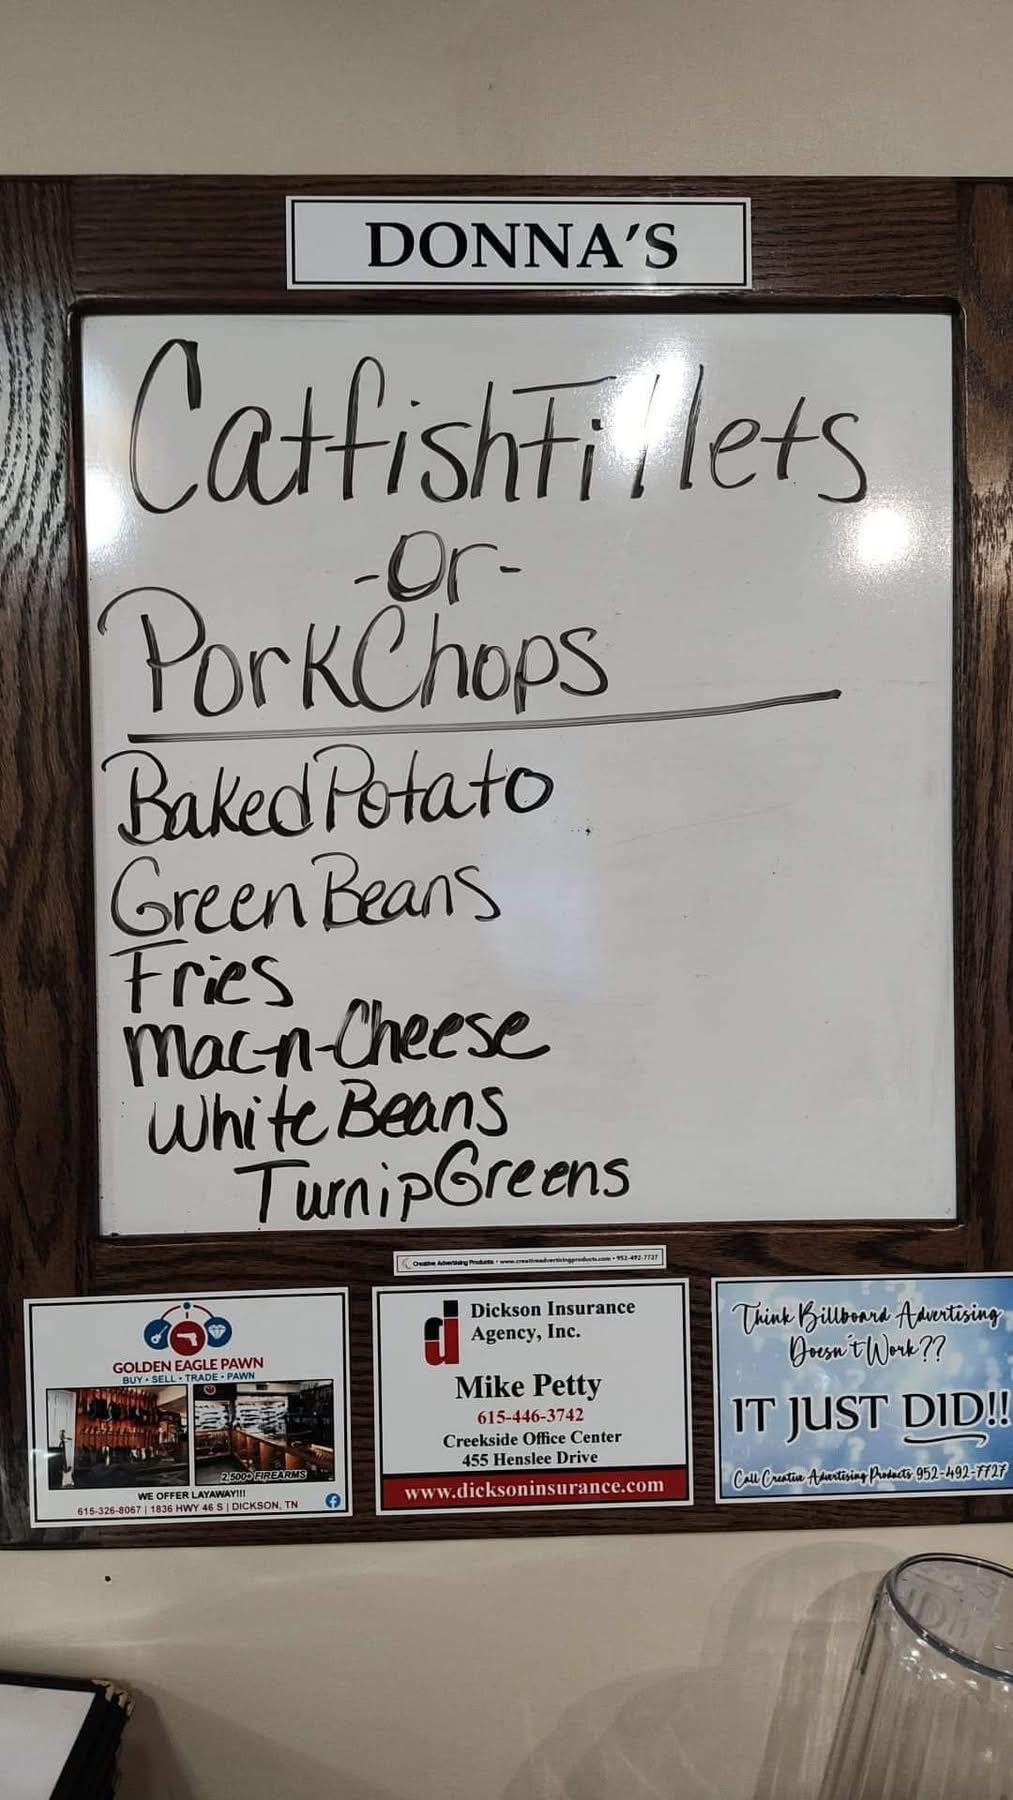 DONNA'S
Catfish Fillets
-Or-
Pork Chops
Baked Potato
Green Beans
Fries
Mac-n-Cheese
White Beans
Turnip Greens
Creative Advertising Products • www.creativeadvertisingproducts.com • 952-492-7727
GOLDEN EAGLE PAWN
BUY • SELL • TRADE • PAWN
2,500+ FIREARMS
WE OFFER LAYAWAY!!!
615-326-8067 | 1836 HWY 46 S | DICKSON, TN
Dickson Insurance
Agency, Inc.
Mike Petty
615-446-3742
Creekside Office Center
455 Henslee Drive
www.dicksoninsurance.com
Think Billboard Advertising
Doesn't Work??
IT JUST DID!!
Call Creative Advertising Products 952-492-7727